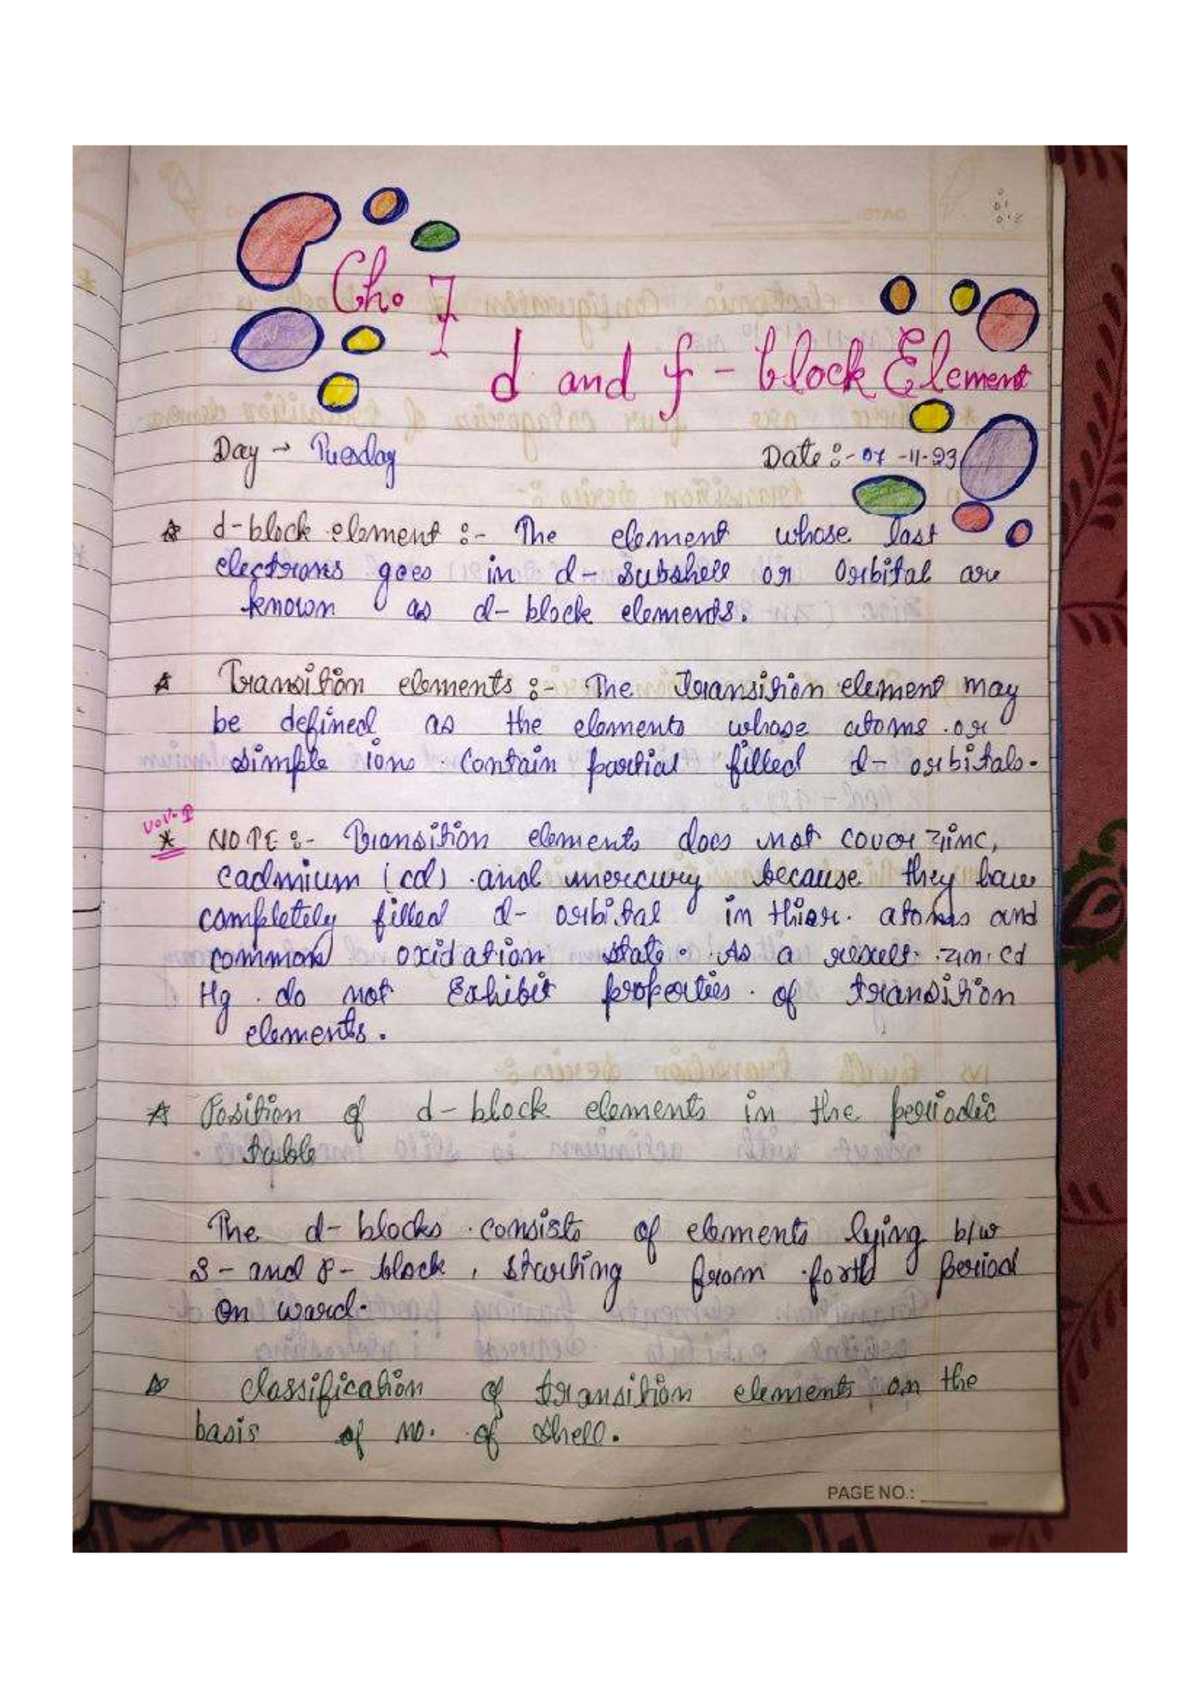 Ch. 7
d and f - block Element
Day → Tuesday Date :- 07 -11-23
☆ d-block element :- The element whose last
electrons goes in d- Subshell or Orbital are
known as d- block elements.
☆ Transition elements :- The Transition element may
be defined as the elements whose atoms or
simple ions contain partial filled d- orbitals.
V.V.I
* NOTE :- Transition elements does not cover zinc,
Cadmium (cd) and mercury because they have
completely filled d- orbital in thier atoms and
common oxidation state. As a result zin. Cd
Hg do not Exhibit properties of transition
elements.
☆ Position of d-block elements in the periodic
table
The d- blocks consists of elements lying b/w
S- and P- block, starting from forth period
on ward.
☆ Classification of transition elements on the
basis of no. of shell.
PAGE NO.: